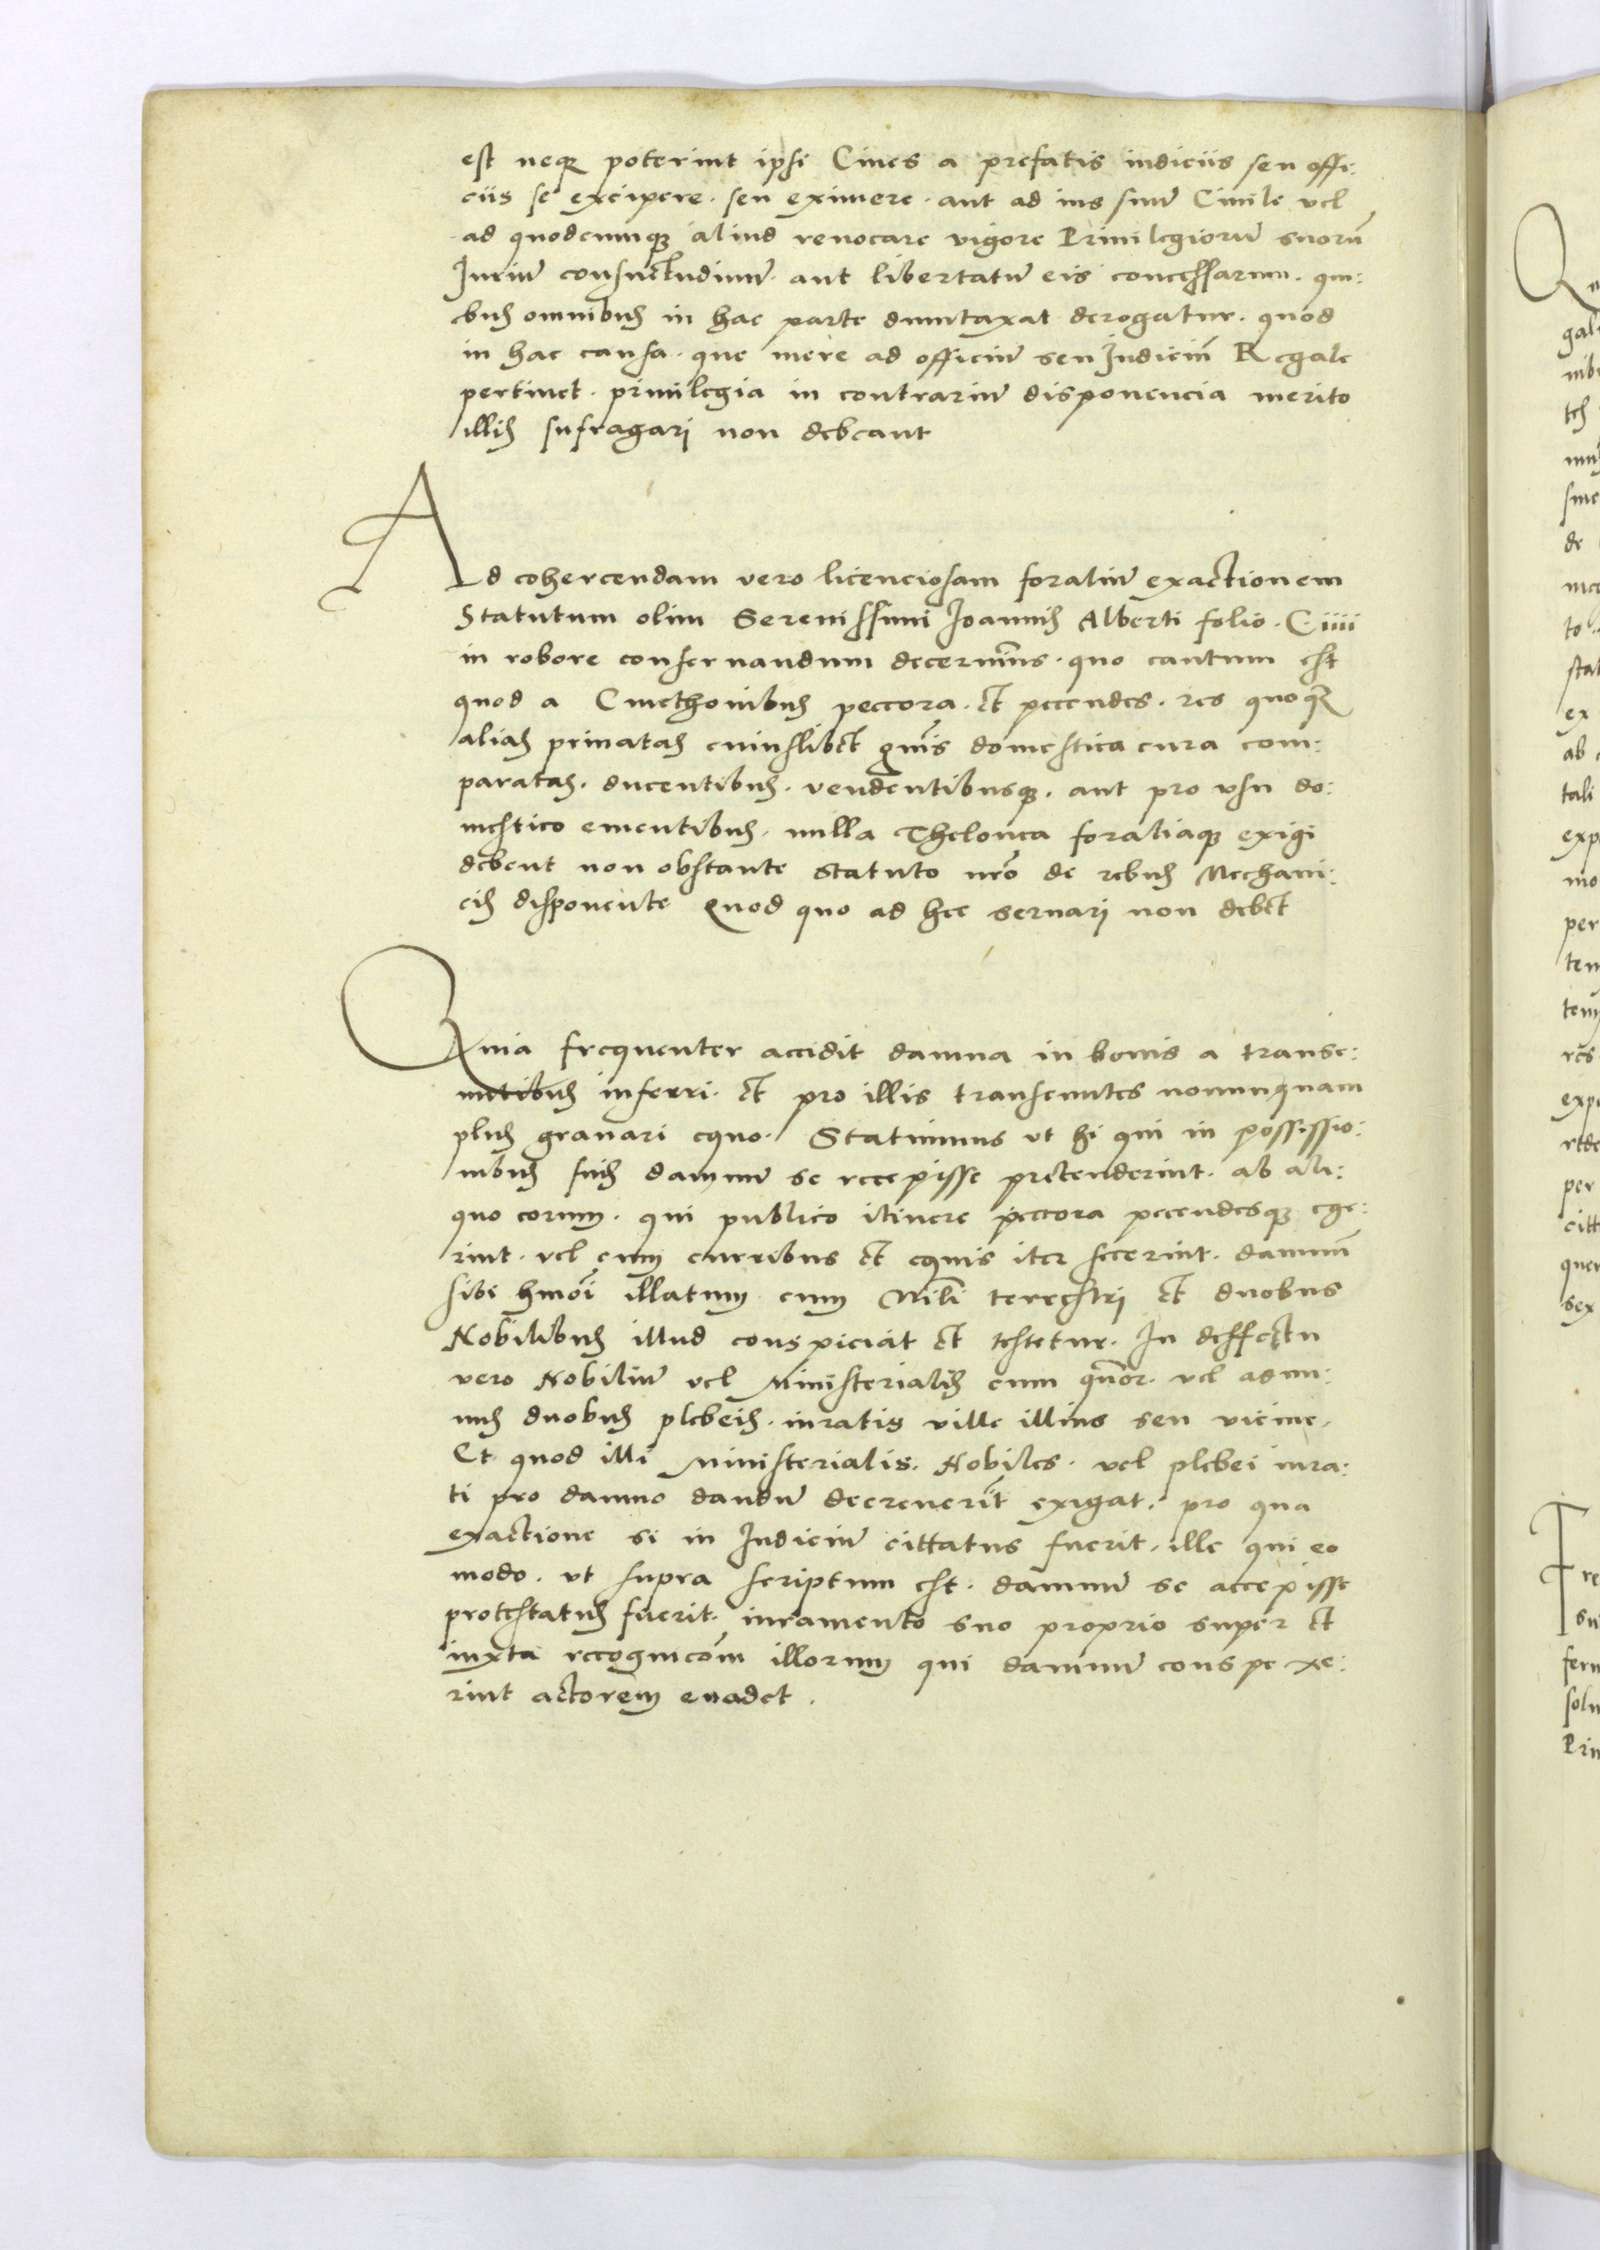 est neq₃ poterint ipsi Ciues a prefatis iudiciis seu offi:
ciis se excipere. seu eximere. aut ad ius suū Ciuile vel
ad quodcumq₃ aliud reuocare vigore Priuilegiorū suorū
Iuriū consuetudinū. aut libertatū eis concessarum. qui:
bus omnibus in hac parte dumtaxat derogatur. quod
in hac causa. que mere ad officiū seu Iudiciū Regale
pertinet. priuilegia in contrariū disponencia merito
illis sufragari non debeant
Ad cohercendam vero licenciosam foraliū exactionem
Statutum olim Serenissimi Ioannis Alberti folio. Ciiii
in robore conseruandum decernim̄us. quo cautum est
quod a Cmethonibus peccora. et pecudes. res quoq₃
alias priuatas cuiuslibet gn̄is domestica cura com:
paratas. ducentibus. vendentibusq₃. aut pro vsu do:
mestico ementibus. nulla Thelonea foraliaq₃ exigi
debent non obstante statuto nr̄o de rebus Mechani:
cis disponente Quod quo ad hec seruari non debet
Quia frequenter accidit damna in bonis a transe:
untibus inferri. et pro illis transeuntes nonnunquam
plus grauari equo. Statuimus vt hi qui in possessio:
nibus suis damnū se recepisse pretenderint. ab ali:
quo eorum. qui publico itinere peccora pecudesq₃ ege:
rint. vel cum curribus et equis iter fecerint. damnū
sibi hmōi illatum cum Mil̄i terrestri et duobus
Nobilibus illud conspiciat et testetur. In deffectu
vero Nobiliū vel Ministerialis cum quōr. vel admi:
nus duobus plebeis. iuratis ville illius seu vicine.
Et quod illi Ministerialis. Nobiles. vel plebei iura:
ti pro damno dandū decreuerīt exigat. pro qua
exactione si in Iudiciū cittatus fuerit. ille qui eo
modo. vt supra scriptum est. damnū se accepisse
protestatus fuerit. iuramento suo proprio super et
iuxta recognicōm illorum qui damnū conspexe:
rint actorem euadet.